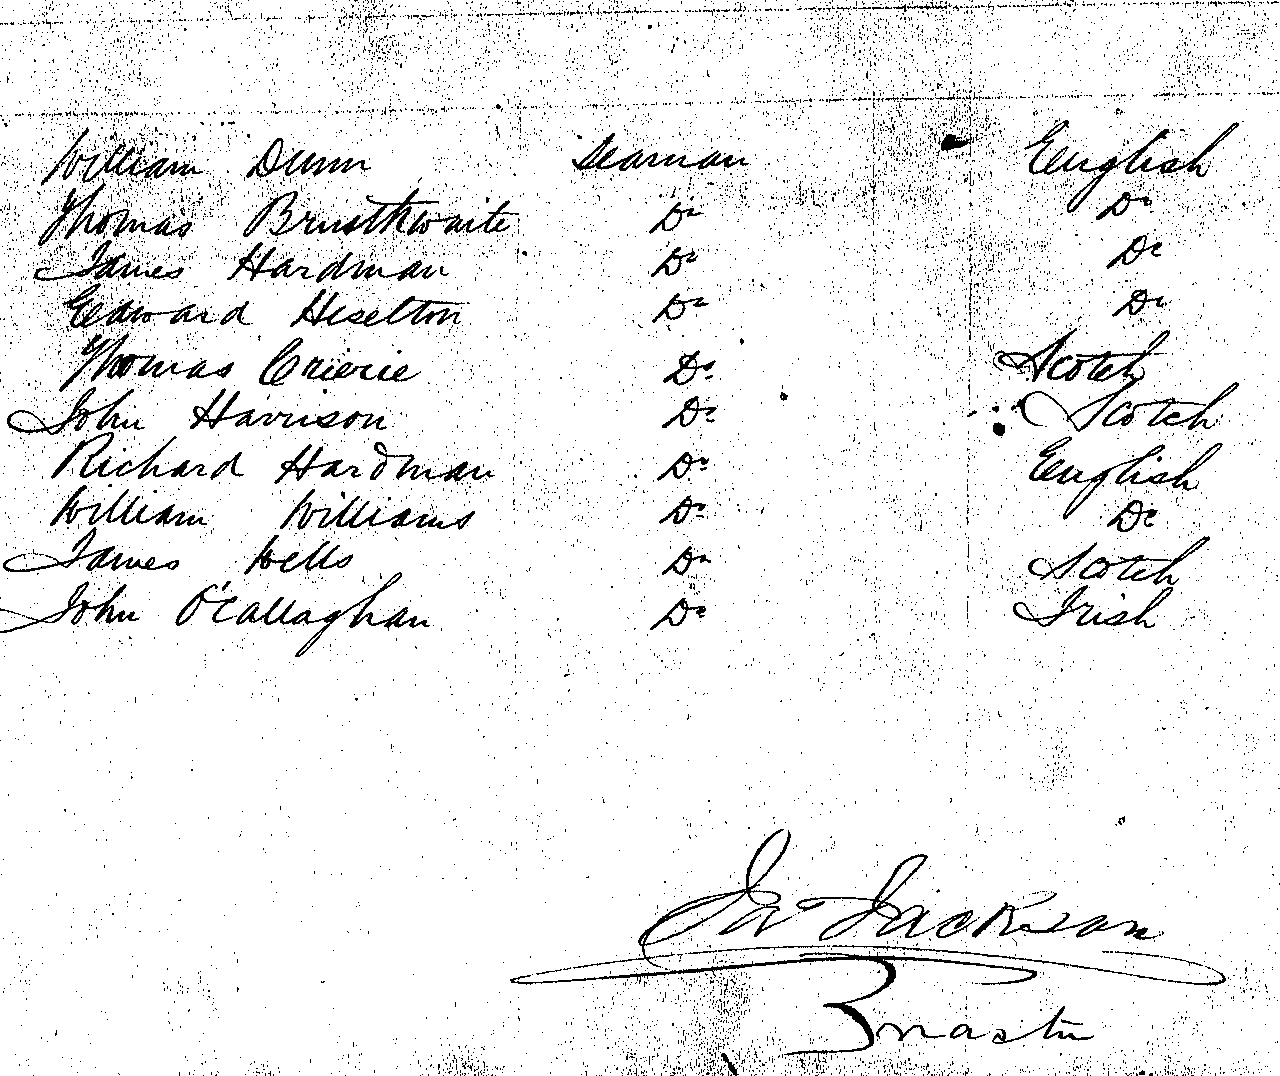 William Dunn Seaman English
Thomas Brusthwaite Do Do
James Hardman Do Do
Edward Heselton Do Do
Thomas Crierie Do Scotch
John Harrison Do Scotch
Richard Hardman Do English
William Williams Do Do
James Wells Do Scotch
John O'Callaghan Do Irish
Jas Jackson
Master